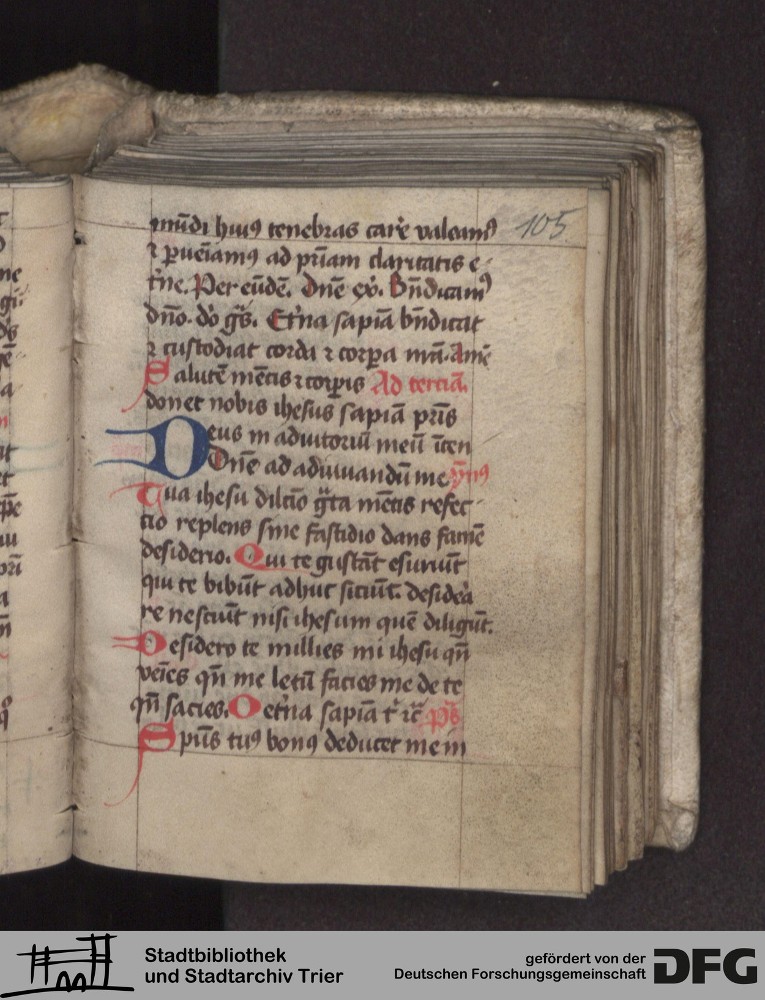 105
mūdi huiꝰ tenebras caꝛ̄e valeamꝰ
⁊ ꝑueīamꝰ ad pr̄iam claritatis e-
t̄ne. Per eūdē. Dn̄e ex̄. Bn̄dicamꝰ
dn̄o. do gr̄s. Et̄na sapīa bn̄dicat
⁊ custodiat corda ⁊ corꝑa nr̄a. Amē
Salutē mētis ⁊ corꝑis Ad terciā.
donet nobis ihesus sapīa pr̄is
Deus in adiutoriū meū īten
Dn̄e ad adiuuandū me ymꝰ
Tua ihesu dilc̄io gr̄ta mētis refec-
tio replens sine fastidio dans famē
desiderio. Qui te gustāt esuriūt
qui te bibūt adhuc siciūt. desidera
re nesciūt nisi ihesum quē diligūt.
Desidero te millies mi ihesu qn̄
veīes qn̄ me letū facies me de te
qn̄ sacies. O et̄na sapīa t̄ ⁊c̄ p̄s
Spūs tuꝰ bonꝰ deducet me in
Stadtbibliothek
und Stadtarchiv Trier
gefördert von der
Deutschen Forschungsgemeinschaft
DFG